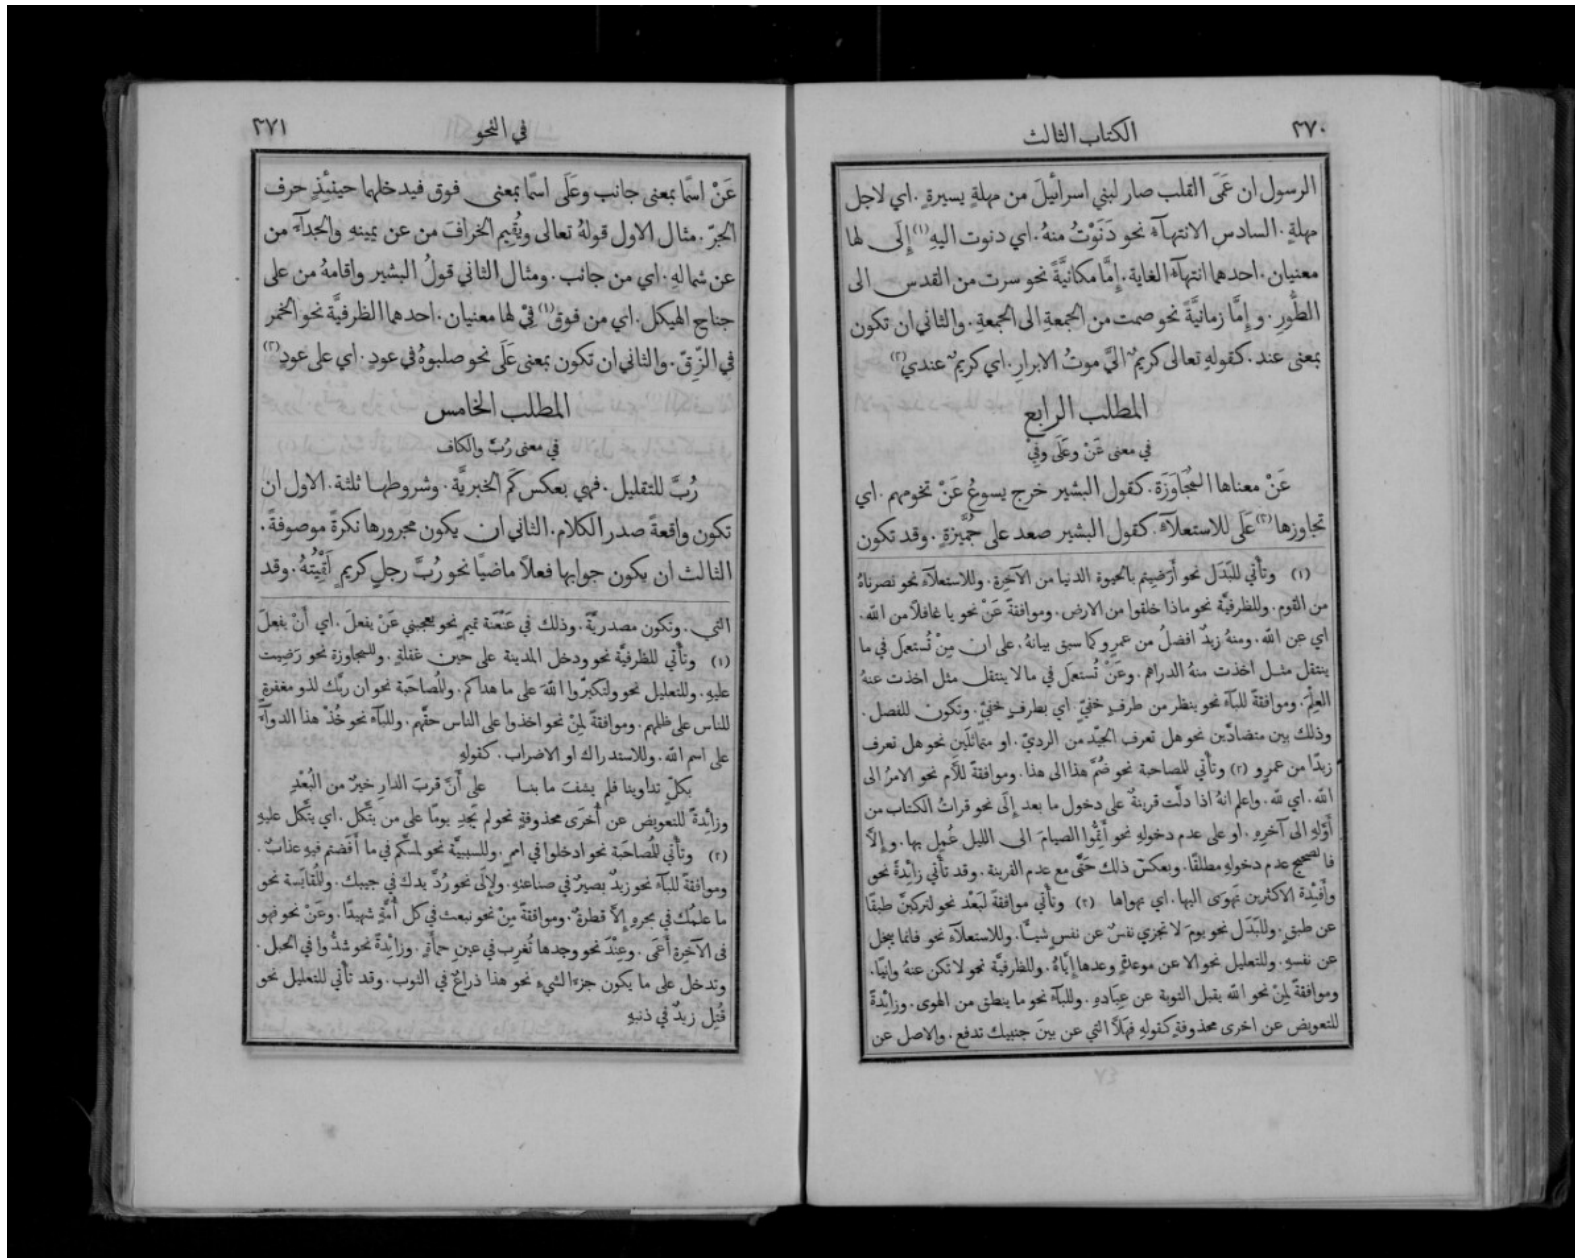 ٣٧٠
الكتاب الثالث
الرسول ان عَمَى القلب صار لبني اسرائيلَ من مهلةٍ يسيرةٍ. اي لاجل
مهلةٍ. السادس الانتهآء نحو دَنَوْتُ منهُ. اي دنوت اليهِ (١) إِلَى لها
معنيان. احدهما انتهآء الغاية. إِمَّا مكانيَّةً نحو سرت من القدس الى
الطُّورِ. و إِمَّا زمانيَّةً نحو صمت من الجمعةِ الى الجمعةِ. والثاني ان تكون
بمعنى عند. كقولهِ تعالى كريمٌ اليَّ موتُ الابرارِ. اي كريمٌ عندي (٢)
المطلب الرابع
في معنى عَنْ وعَلَى وفِيْ
عَنْ معناها المُجَاوَزَة. كقول البشير خرج يسوعُ عَنْ تخومهم. اي
تجاوزها (٣) عَلَى للاستعلآء. كقول البشير صعد على جُمَّيزةٍ. وقد تكون
(١) وتأتي للبَدَل نحو أَرَضِيتم بالحيوة الدنيا من الآخِرة. وللاستعلآء نحو نصرناهُ
من القوم. وللظرفيَّة نحو ماذا خلقوا من الارض. وموافقةَ عَنْ نحو يا غافلًا من الله.
اي عن الله. ومنهُ زيدٌ افضلُ من عمرٍو كما سبق بيانهُ. على ان مِنْ تُستعمَل في ما
ينتقل مثل اخذت منهُ الدراهم. وعَنْ تُستعمَل في ما لا ينتقل مثل اخذت عنهُ
العِلْمَ. وموافقةَ للبآء نحو ينظر من طرفٍ خفيٍّ. اي بطرفٍ خفيٍّ. وتكون للفصل.
وذلك بين متضادَّين نحو هل تعرف الجيّد من الرديّ. او متماثلَين نحو هل تعرف
زيدًا من عمرٍو (٢) وتأتي للمصاحبة نحو ضُمَّ هذا الى هذا. وموافقةً للَّام نحو الامرُ الى
الله. اي لله. واعلم انهُ اذا دلَّت قرينةٌ على دخول ما بعد إِلَى نحو قرات الكتاب من
أَوَّلهِ الى آخرِهِ. او على عدم دخولهِ نحو أَتِمُّوا الصيامَ الى الليل عُمِل بها. وإِلَّا
فالصحيح عدم دخولهِ مطلقًا. وبعكس ذلك حَتَّى مع عدم القرينة. وقد تأتي زائِدةً نحو
وأَفيْدة الاكثرين تَهوَى اليها. اي تهواها (٣) وتأتي موافقةً لبَعْد نحو لتركبنَّ طبقًا
عن طبقٍ. وللبَدَل نحو يومَ لا تجزي نفسٌ عن نفسٍ شيئًا. وللاستعلآء نحو فانما يبخل
عن نفسهِ. وللتعليل نحو الا عن موعدةٍ وعدها إِيَّاهُ. وللظرفيَّة نحو لا تكن عنهُ وانيًا.
وموافقةً لمِنْ نحو الله يقبل التوبة عن عِبَادهِ. وللبآء نحو ما ينطق من الهوى. وزائِدةً
للتعويض عن اخرى محذوفةٍ كقولهِ فهَلَّا التي عن بينَ جنبيك تدفع. والاصل عن
٣٧١
في النحو
عَنْ اسمًا بمعنى جانب وعَلَى اسمًا بمعنى فوق فيدخلهما حينئِذٍ حرف
الجرّ. مثال الاول قولهُ تعالى ويُقيم الخرافَ من عن يمينهِ والجدآءَ من
عن شمالهِ. اي من جانب. ومثال الثاني قولُ البشير واقامهُ من على
جناح الهيكل. اي من فوق (١) فِيْ لها معنيان. احدهما الظرفيَّة نحو الخمر
في الزِّقّ. والثاني ان تكون بمعنى عَلَى نحو صلبوهُ في عودٍ. اي على عودٍ (٢)
المطلب الخامس
في معنى رُبَّ والكاف
رُبَّ للتقليل. فهي بعكس كَم الخبريَّة. وشروطها ثلثة. الاول ان
تكون واقعةً صدر الكلام. الثاني ان يكون مجرورها نكرةً موصوفةً.
الثالث ان يكون جوابها فعلًا ماضيًا نحو رُبَّ رجلٍ كريمٍ لَقَيْتُهُ. وقد
التي. وتكون مصدريَّةً. وذلك في عَنْعَنَة تميمٍ نحو يعجبني عَنْ يفعلَ. اي أَنْ يفعلَ
(١) وتأتي للظرفيَّة نحو ودخل المدينة على حين غفلةٍ. وللمجاوزة نحو رَضِيت
عليهِ. وللتعليل نحو ولتكبّروا اللهَ على ما هداكم. وللمُصاحَبة نحو ان ربَّك لذو مغفرةٍ
للناس على ظلمهم. وموافقةً لمِنْ نحو اخذوا على الناس حقَّهم. وللبآء نحو خُذْ هذا الدوآءَ
على اسم الله. وللاستدراك او الاضراب. كقولهِ
بكلّ تداوينا فلم يشفَ ما بنا على أَنَّ قربَ الدارِ خيرٌ من البُعْدِ
وزائِدةً للتعويض عن أُخرَى محذوفةٍ نحو لم يَجِدِ يومًا على من يتَّكل. اي يتَّكل عليهِ
(٢) وتأتي للمُصاحَبة نحو ادخلوا في امرٍ. وللسببيَّة نحو لمسَّكم في ما أَفَضتم فيهِ عذابٌ.
وموافقةً للبآء نحو زيدٌ بصيرٌ في صناعتهِ. ولإِلَى نحو رُدَّ يدك في جيبك. وللمُقايَسة نحو
ما علمُك في بحرهِ إِلَّا قطرةٌ. وموافقةً مِنْ نحو نبعث في كل أُمَّةٍ شهيدًا. وعَنْ نحو فهو
في الآخِرة أَعمَى. وعِنْدَ نحو وجدها تُغرِب في عينٍ حمأةٍ. وزائِدةً نحو شدُّوا في الحبل.
وتدخل على ما يكون جزءَ الشيءِ نحو هذا ذراعٌ في الثوب. وقد تأتي للتعليل نحو
قُتِل زيدٌ في ذنبهِ